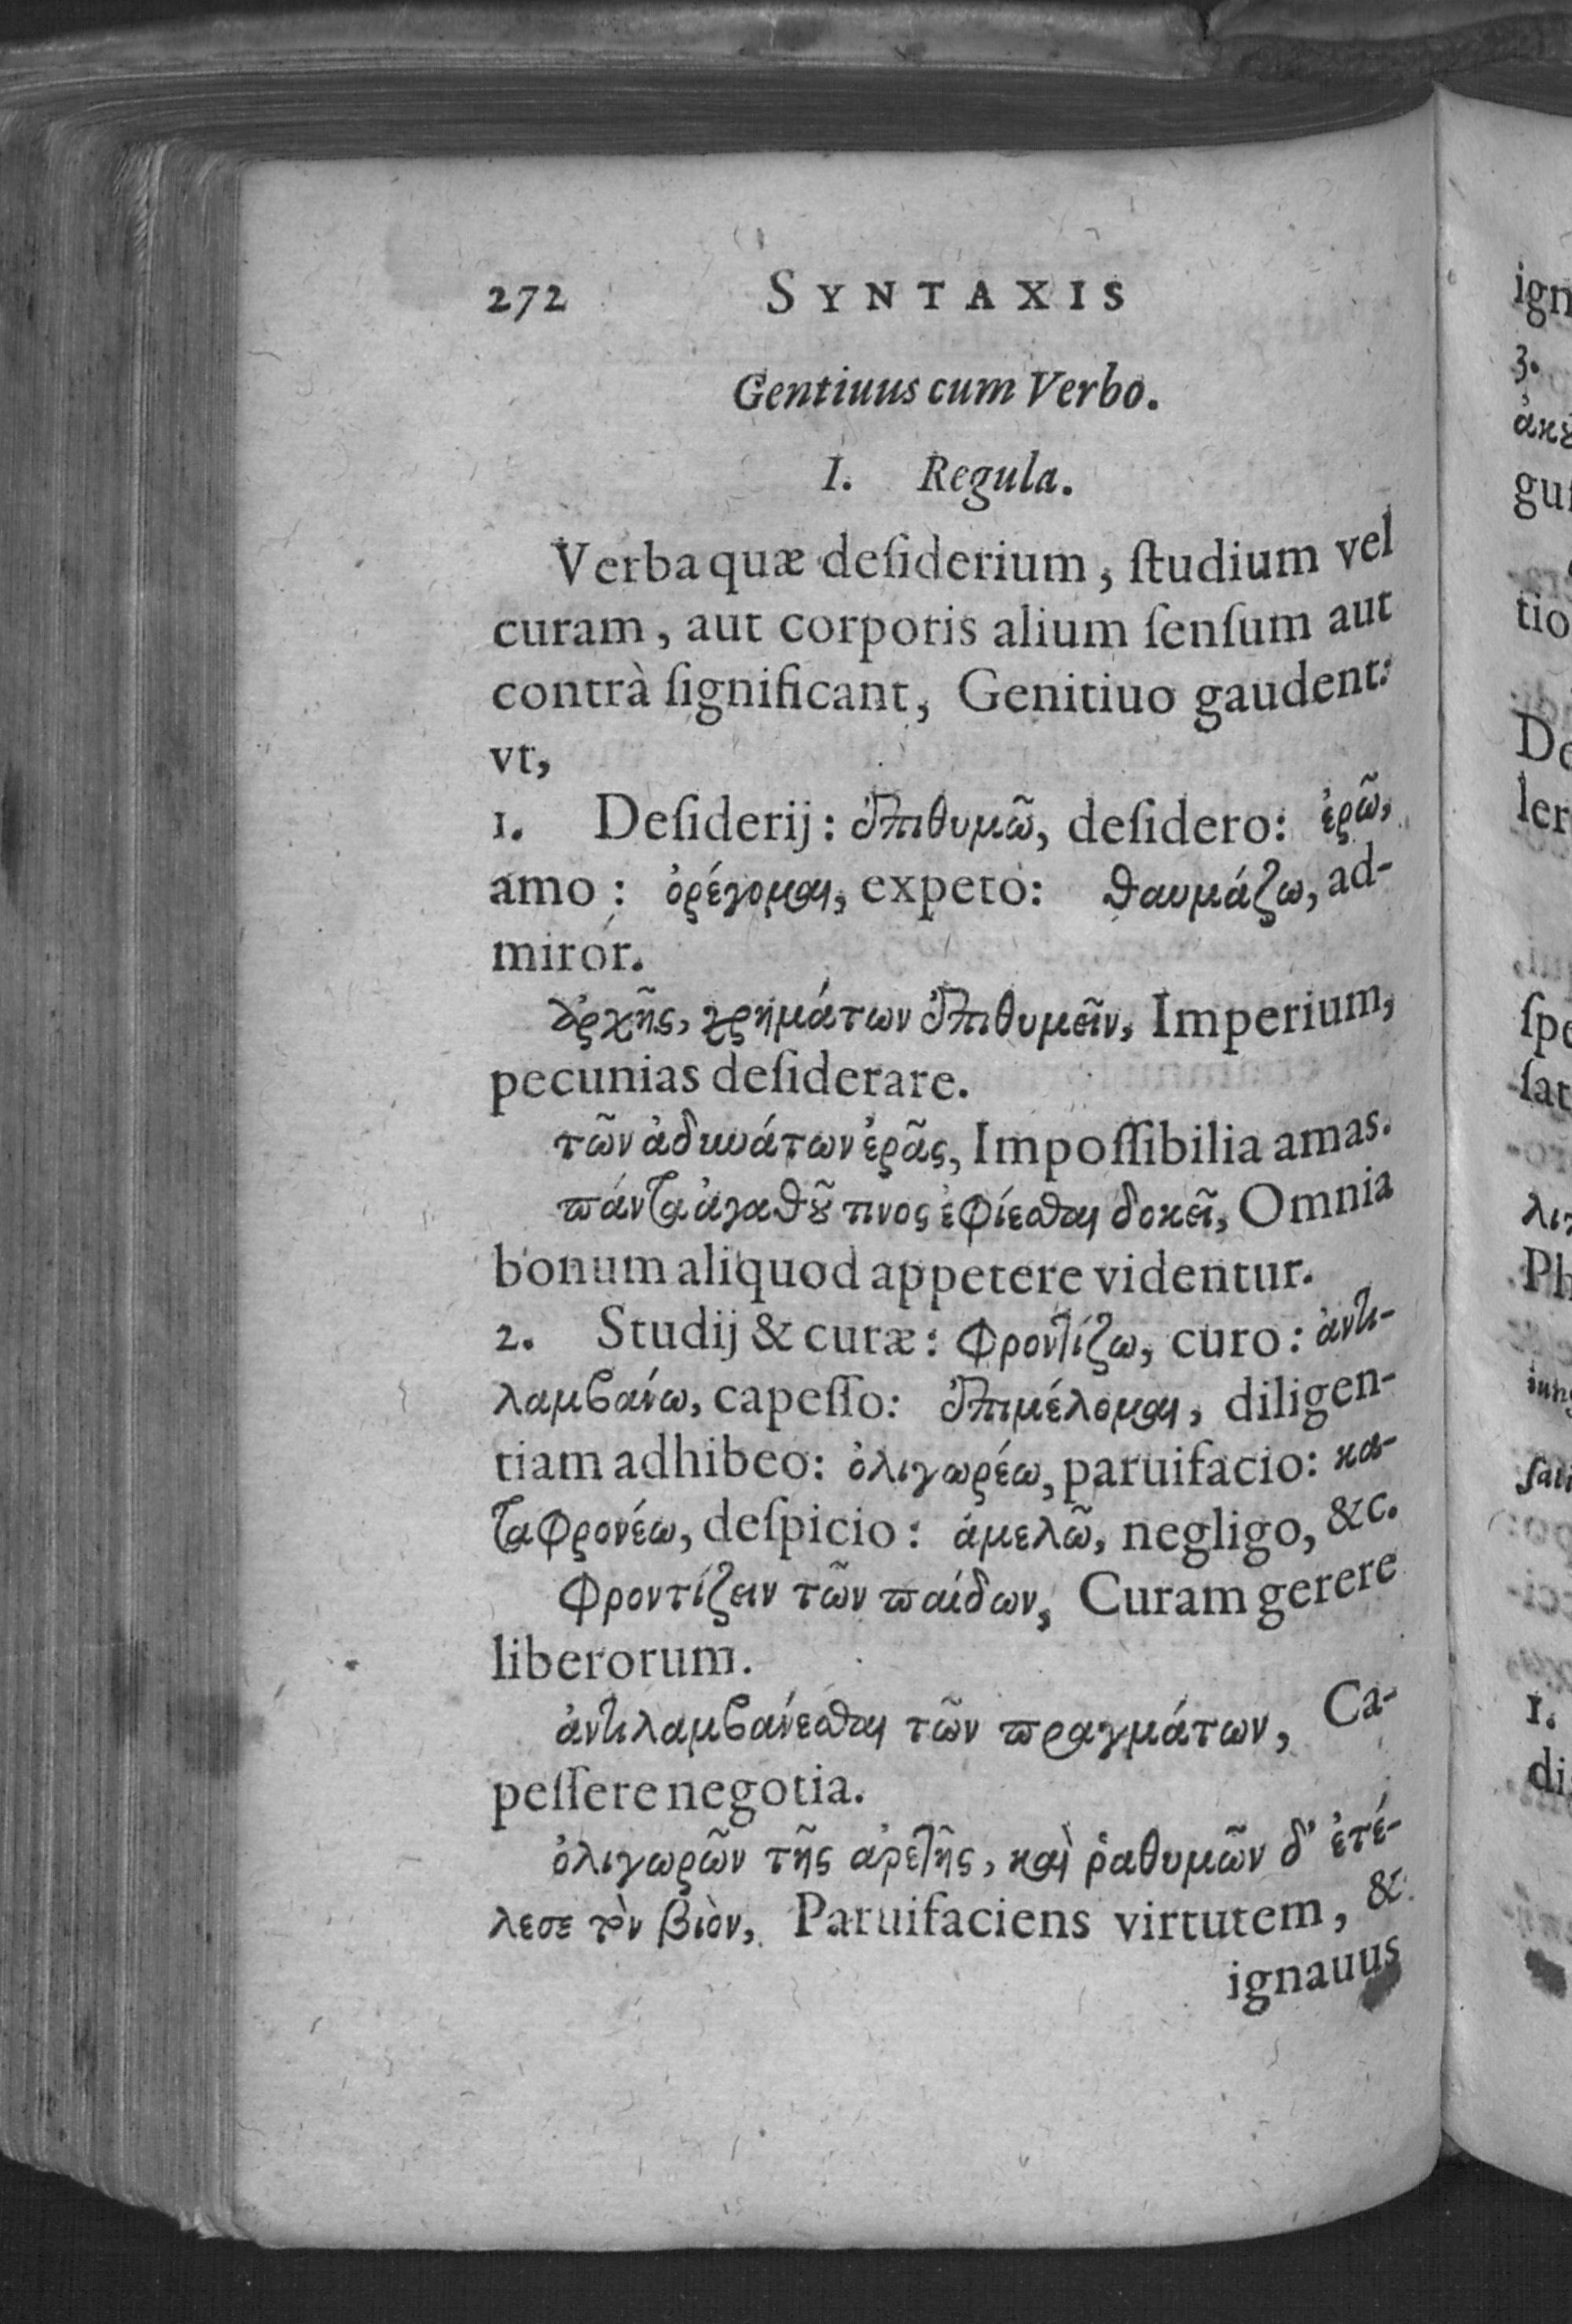 272 SYNTAXIS
Gentiuus cum Verbo.
I. Regula.
Verba quæ deſiderium, ſtudium vel
curam, aut corporis alium ſenſum aut
contrà ſignificant, Genitiuo gaudent:
vt,
1. Deſiderij: ἐπιθυμῶ, deſidero: ἐρῶ,
amo: ὀρέγομαι, expeto: θαυμάζω, ad-
miror.
ἀρχῆς, χρημάτων ἐπιθυμεῖν, Imperium,
pecunias deſiderare.
τῶν ἀδυνάτων ἐρᾶς, Impoſſibilia amas.
πάντα ἀγαθοῦ τινος ἐφίεσθαι δοκεῖ, Omnia
bonum aliquod appetere videntur.
2. Studij & curæ: φροντίζω, curo: ἀντι-
λαμβανω, capeſſo: ἐπιμέλομαι, diligen-
tiam adhibeo: ὀλιγωρέω, paruifacio: κα-
ταφρονέω, deſpicio: ἀμελῶ, negligo, &c.
φροντίζειν τῶν παίδων, Curam gerere
liberorum.
ἀντιλαμβάνεσθαι τῶν πραγμάτων, Ca-
peſſere negotia.
ὀλιγωρῶν τῆς ἀρετῆς, καὶ ῥαθυμῶν δ' ἐτέ-
λεσε τὸν βιὸν, Paruifaciens virtutem, &
ignauus